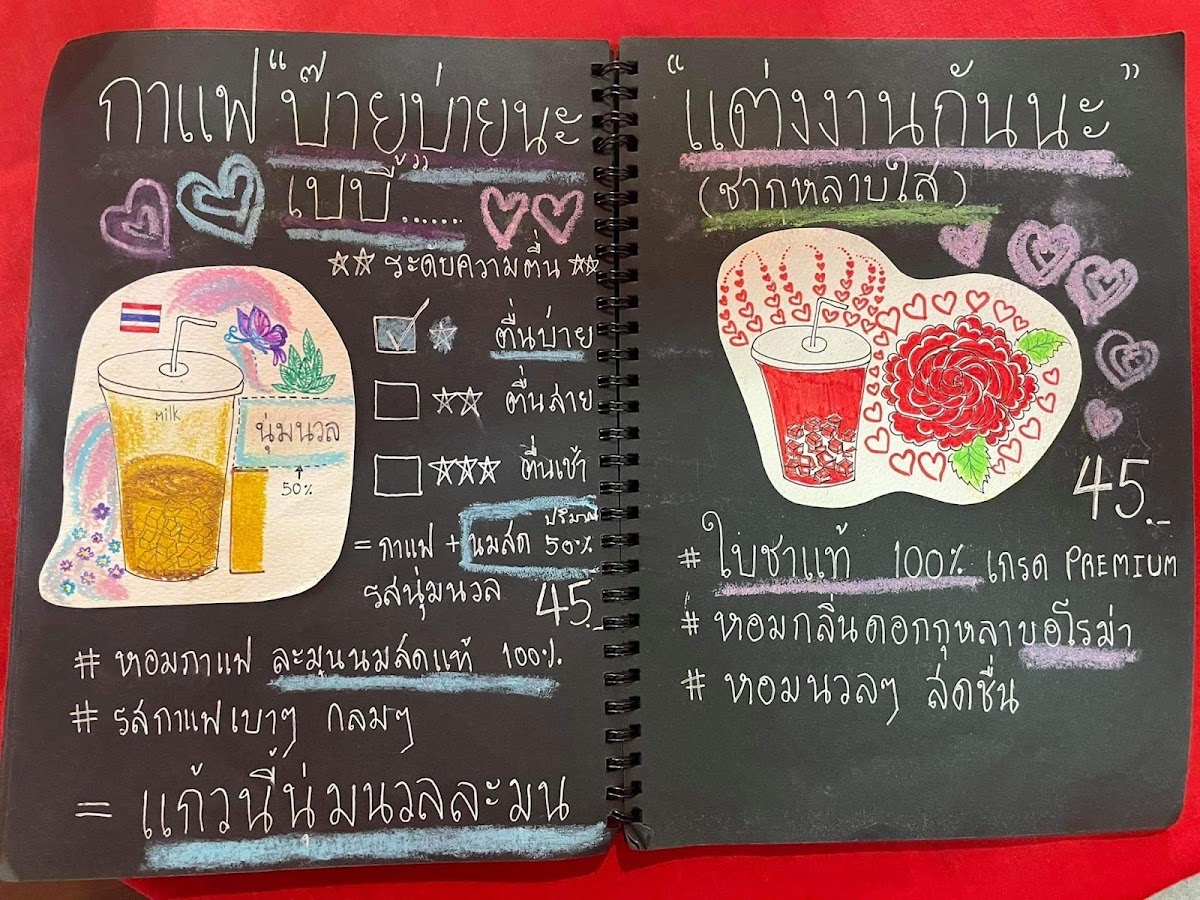 กาแฟ "บ๊ายบ่ายนะ
เบบี้"......
☆☆ ระดับความตื่น ☆☆
☆ ตื่นบ่าย
☆☆ ตื่นสาย
☆☆☆ ตื่นเช้า
Milk
นุ่มนวล
50%
= กาแฟ + นมสด ปริมาณ 50%
รสนุ่มนวล 45.-
# หอมกาแฟ ละมุนนมสดแท้ 100%
# รสกาแฟเบาๆ กลมๆ
= แก้วนี้นุ่มนวลละมุน
"แต่งงานกันนะ"
(ชากุหลาบใส)
45.-
# ใบชาแท้ 100% เกรด PREMIUM
# หอมกลิ่นดอกกุหลาบอโรม่า
# หอมนวลๆ สดชื่น